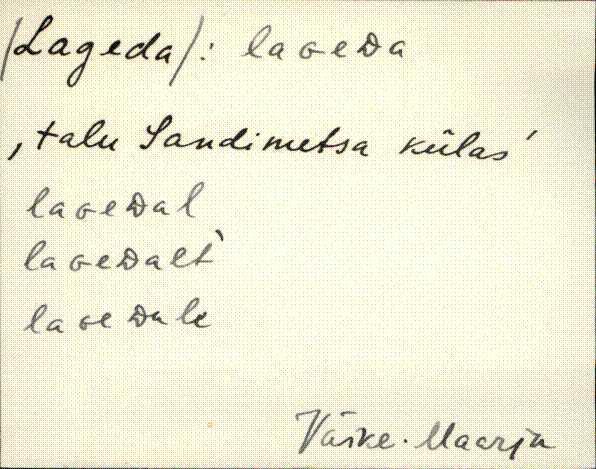 /Lageda/: laɢeᴅa
‚talu Sandimetsa külas’
laɢeᴅal
laɢeᴅalt`
laɢeᴅale
Väike-Maarja